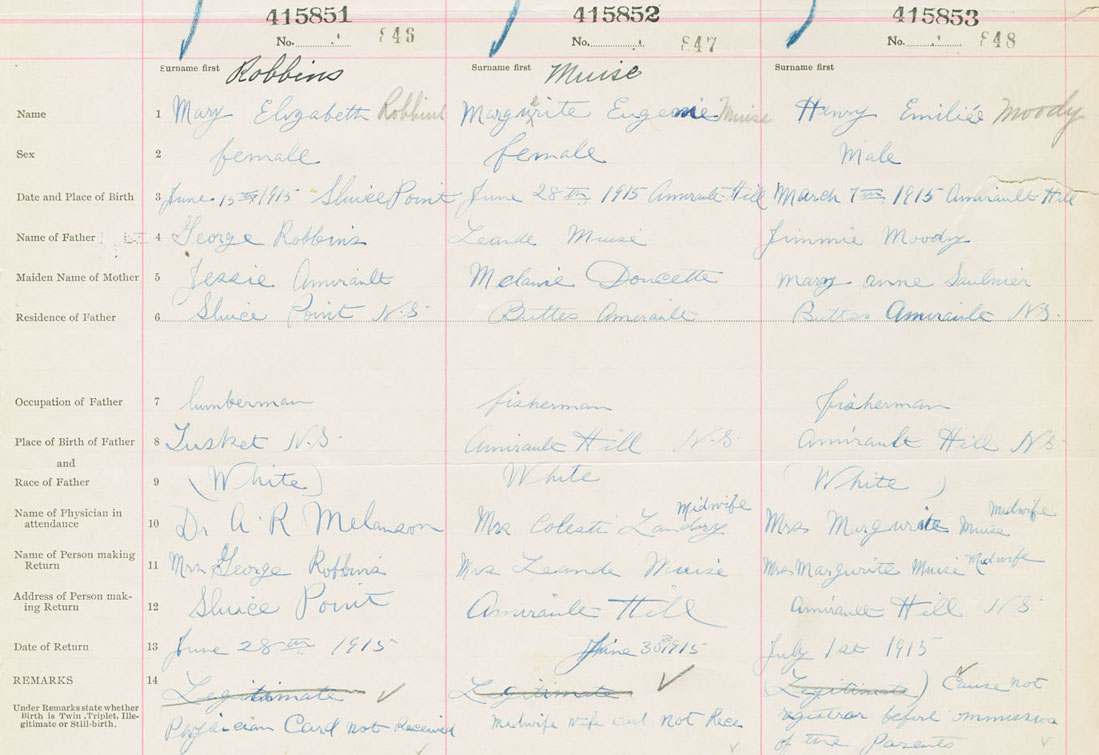 415851 415852 415853
No. 846 No. 847 No. 848
Surname first Robbins Surname first Muise Surname first
Name 1 Mary Elizabeth Robbins Margurite Eugenie Muise Henry Emilié Moody
Sex 2 female female Male
Date and Place of Birth 3 June 15th 1915 Sluice Point June 28th 1915 Amirault Hill March 7th 1915 Amirault Hill
Name of Father 4 George Robbins Leande Muise Jimmie Moody
Maiden Name of Mother 5 Jessie Amirault Melanie Doucette Mary anne Saulnier
Residence of Father 6 Sluice Point N.S. Buttes Amirault Buttes Amirault N.S.
Occupation of Father 7 lumberman fisherman fisherman
Place of Birth of Father 8 Tusket N.S. Amirault Hill N.S. Amirault Hill N.S
and
Race of Father 9 (White) White (White)
Name of Physician in attendance 10 Dr A. R Melanson Mrs Colesti Landry Midwife Mrs Margurite Muise Midwife
Name of Person making Return 11 Mrs George Robbins Mrs Leande Muise Mrs Margurite Muise Midwife
Address of Person making Return 12 Sluice Point Amirault Hill Amirault Hill N.S
Date of Return 13 June 28th 1915 June 30 1915 July 1st 1915
REMARKS 14 Legitimate Legitimate (Legitimate) Cause not
Under Remarks state whether Birth is Twin, Triplet, Illegitimate or Still-birth. Physician Card not Received Midwife card not Rece registrar before ommission
of the Parents